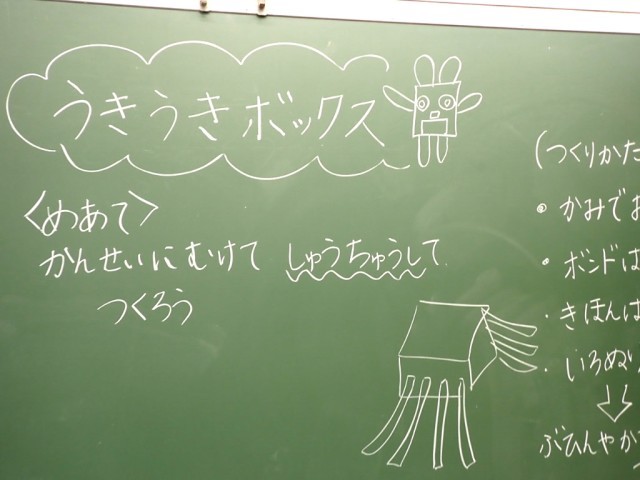 うきうきボックス
<めあて>
かんせいにむけて しゅうちゅうして
つくろう
(つくりかた
• かみでお
• ボンドは
・きほんは
・いろぬり
⇩
ぶひんやか